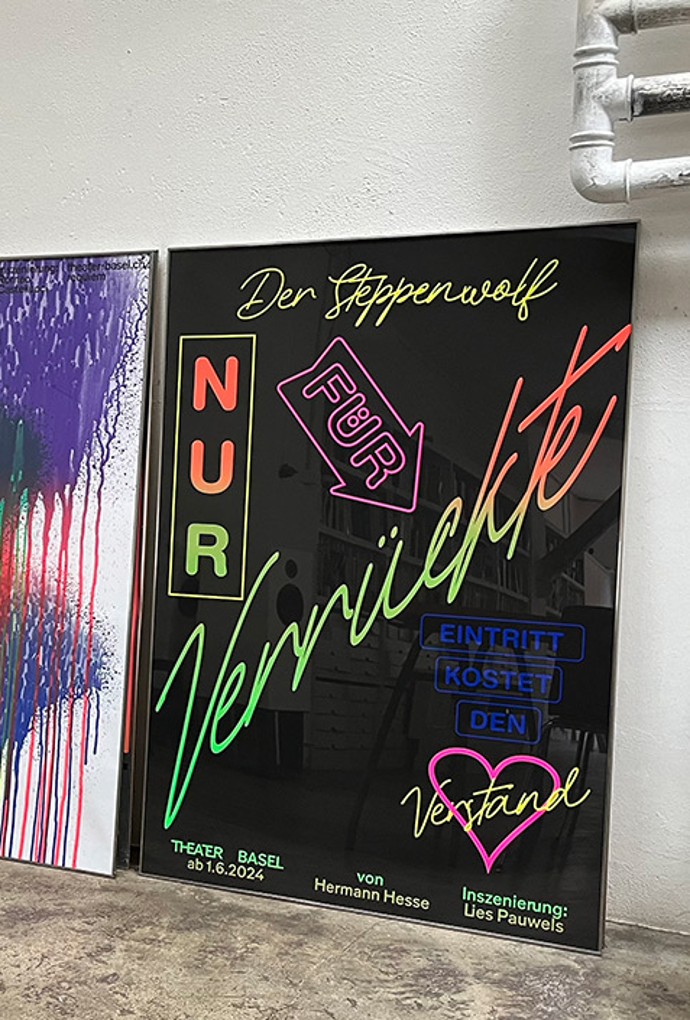 theater-basel.ch
requiem
Der Steppenwolf
NUR
FÜR
Verrückte
EINTRITT
KOSTET
DEN
Verstand
THEATER BASEL
ab 1.6.2024
von
Hermann Hesse
Inszenierung:
Lies Pauwels